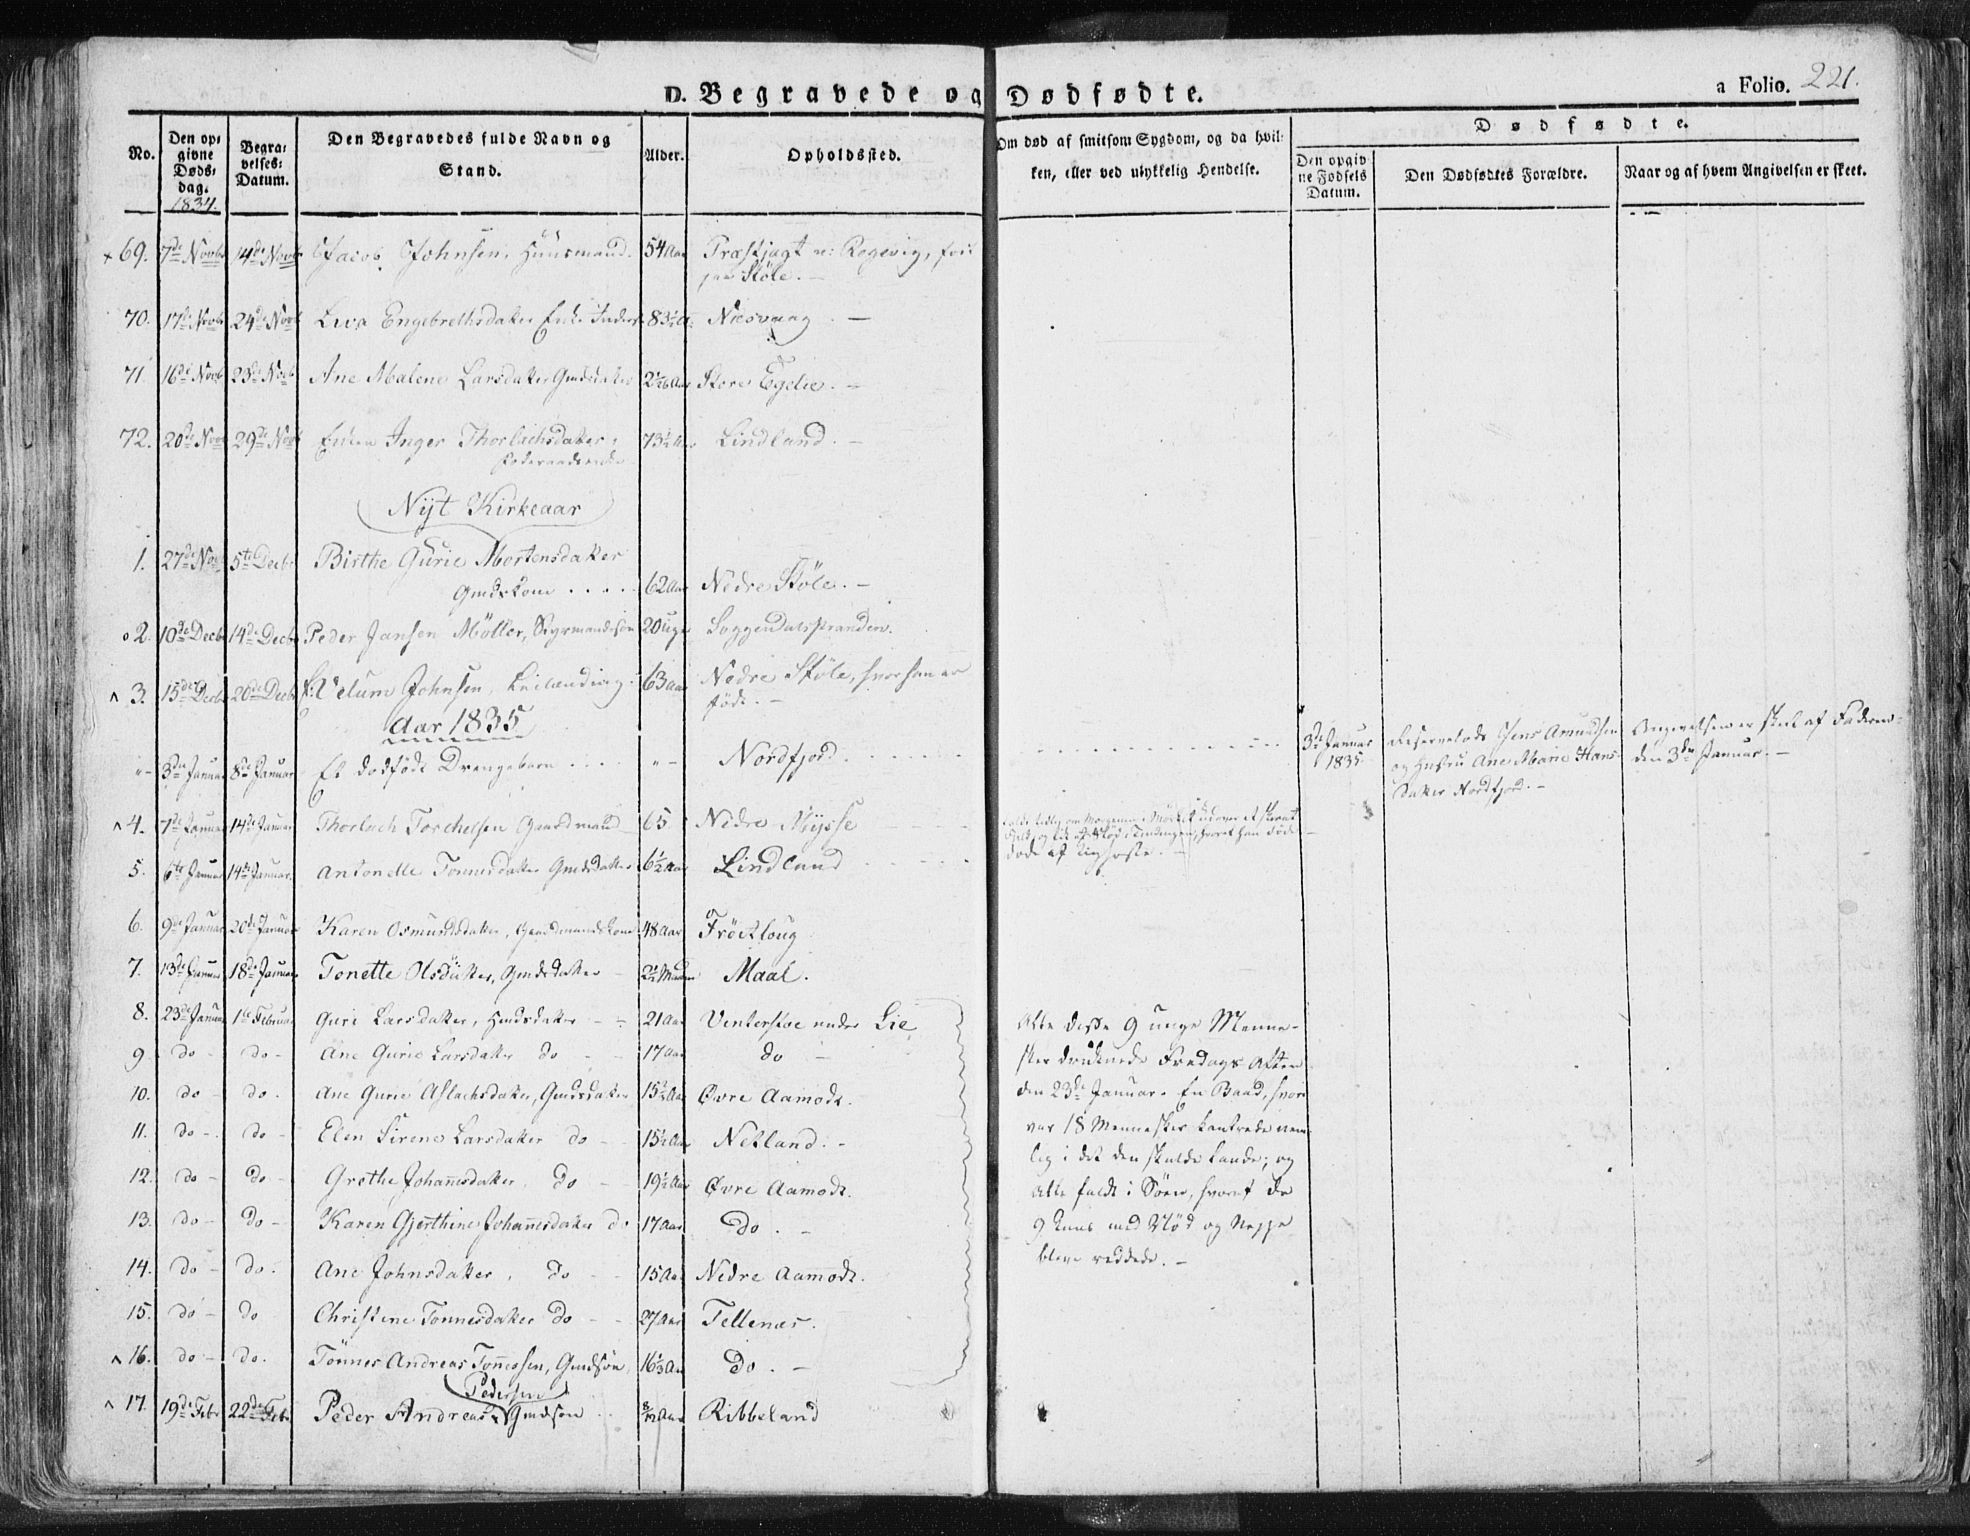 D. Begravede og Dødfødte.
a Folio. 221.
No. Den opgivne Dødsdag. 1834. Begravelses-Datum. Den Begravedes fulde Navn og Stand. Alder. Opholdssted. Om død af smitsom Sygdom, og da hvilken, eller ved ulykkelig Hendelse.
Dødfødte.
Den opgivne Fødsels Datum. Den Dødfødtes Forældre. Naar og af hvem Angivelsen er skeet.
69. 7de Novb 14de Novb Jacob Johnsen, Huusmand. 54 Aar Præstjagt v: Regevig,
Støle. -
70. 17de Novb 24de Novb Liva Engebrethsdatter Enke 83½ A. Niesvaag -
71. 16de Novb 23de Novb Ane Malene Larsdatter Gmdsdatter Store Egelie. -
72. 20de Novb 29de Novb Enken Inger Thorlachsdatter, 73½ Aar Lindland. -
Nÿt Kirkeaar
1. 27de Nov 5te Decbr Birthe Gurie Mortensdatter
Gmdskone .... 62 Aar Nedre Støle. -
2. 10de Decb 14de Decb Peder Jansen Møller, Styrmandssøn 20 Uger Soggendalsstranden.
3. 15de Decb 20de Decb Velum Johnsen, Leilænding. 63 Aar Nedre Støle, hvor han er
født. -
Aar 1835
"- 3de Januar 8de Januar Et dødfødt Drengebarn .... "- Nordfjord
3de Januar 1835 Reservelods Jens Amundsen
og Hustru Ane Marie Hans-
datter Nordfjord. -
Angivelsen er skeet af Faderen
den 3de Januar. -
4. 7de Januar 14de Januar Thorlach Torchelsen Gaardmand 65 Nedre Mÿsse
5. 6te Januar 14de Januar Antonette Tønnesdatter Gmdsdatter 6½ Aar Lindland
døde af Kighoste. -
6. 9de Januar 20de Januar Karen Osmundsdatter, Gaardmandskone 48 Aar Frøitloug
7. 13de Januar 18de Januar Tonette Olsdatter, Gmdsdatter - Maal.
8. 23de Januar 1te Februar Guri Larsdatter, Hmdsdatter - 21 Aar Vinterstøe under Lie
9 do - do - Ane Gurie Larsdatter do 17 Aar do -
10. do - do. Ane Gurie Aslachsdatter, Gmdsdatter 15½ Aar Øvre Aamodt.
11. do - do - Elen Sirene Larsdatter do - 15½ Aar Netland. -
12. do - do - Grethe Johannesdatter do - 19½ Aar Øvre Aamodt.
13. do - do - Karen Gjerthine Johannesdatter do 17 Aar do. -
14. do - do. Ane Johnsdatter, do - 15 Aar Nedre Aamodt.
15. do - do Christine Tønnesdatter do - 27 Aar Tellenæs.
16. do - do. Tønnes Andreas Tønnessen, Gmdsøn, 16⅓ Aar do. -
Alle disse 9 unge Menne-
sker druknede Fredags Aften
den 23de Januar. En Baad, hvori
var 18 Mennesker kantrede nem-
lig i det den skulde lande; og
Alle faldt i Søen, hvoraf de
9 kuns med Nød og Neppe
bleve reddede. -
Pedersen
17. 19de Febr 22de Febr Peder Andreas Gmdsøn Ribbeland